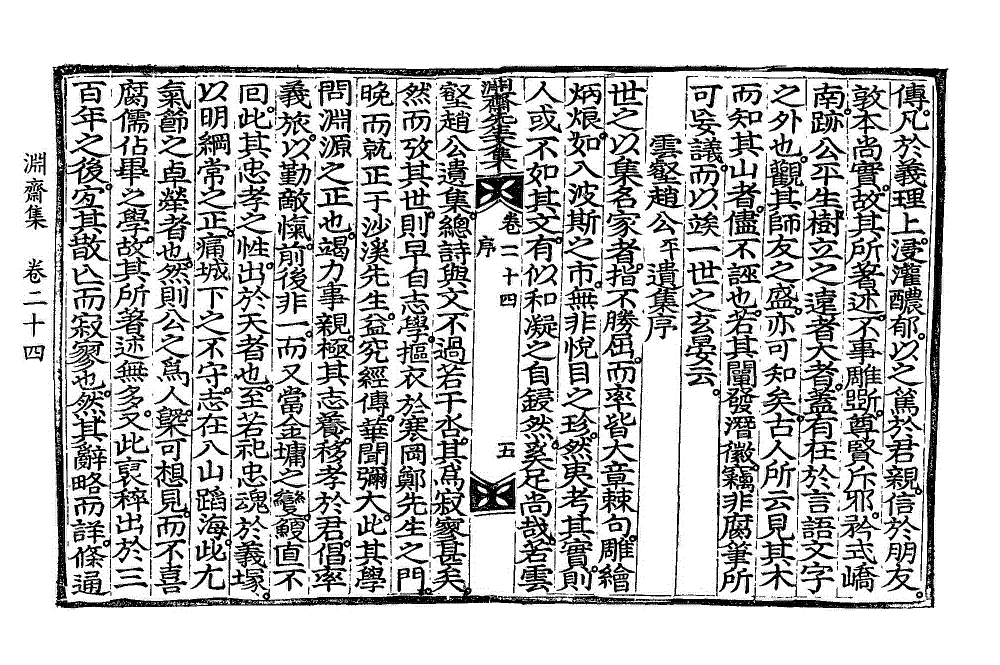 傳。凡於義理上。浸灌醲郁。以之篤於君親。信於朋友。
敦本尙實。故其所著述。不事雕斲。尊賢斥邪。矜式嶠
南。跡公平生。樹立之遠者大者。蓋有在於言語文字
之外也。觀其師友之盛。亦可知矣。古人所云見其木
而知其山者。儘不誣也。若其闡發潛徽。竊非腐筆所
可妄議。而以竢一世之玄晏云。
雲壑趙公平遺集序
世之以集名家者。指不勝屈。而率皆大章棘句。雕繪
炳烺。如入波斯之市。無非悅目之珍。然夷考其實。則
人或不如其文。有似和凝之自鋟。然奚足尙哉。若雲
淵齋先生文集 卷二十四 序 五
壑趙公遺集。總詩與文不過若干呇。其爲寂寥甚矣。
然而攷其世。則早自志學。摳衣於寒岡鄭先生之門。
晩而就正于沙溪先生。益究經傳。華聞彌大。此其學
問淵源之正也。竭力事親。極其志養。移孝於君。倡率
義旅。以勤敵愾。前後非一。而又當金墉之變。鯁直不
回。此其忠孝之性。出於天者也。至若祀忠魂於義塚。
以明綱常之正。痛城下之不守。志在入山蹈海。此尤
氣節之卓犖者也。然則公之爲人。槩可想見。而不喜
腐儒佔畢之學。故其所著述無多。又此裒稡出於三
百年之後。宐其散亾而寂寥也。然其辭略而詳。條通
淵齋集 卷二十四